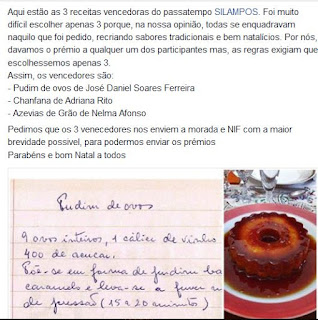 Aqui estão as 3 receitas vencedoras do passatempo SILAMPOS. Foi muito
difícil escolher apenas 3 porque, na nossa opinião, todas se enquadravam
naquilo que foi pedido, recriando sabores tradicionais e bem natalícios. Por nós,
davamos o prémio a qualquer um dos participantes mas, as regras exigiam que
escolhessemos apenas 3.
Assim, os vencedores são:
- Pudim de ovos de José Daniel Soares Ferreira
- Chanfana de Adriana Rito
- Azevias de Grão de Nelma Afonso
Pedimos que os 3 venecedores nos enviem a morada e NIF com a maior
brevidade possivel, para podermos enviar os prémios
Parabéns e bom Natal a todos
Pudim de ovos
9 ovos inteiros, 1 cálice de vinho
400 de açucar.
Põe-se em forma de pudim
caramelo e leva-se a
de pressão (15 a 20 minutos)